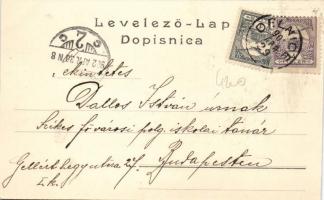 Levelező-Lap
Dopisnica
DELNICE
Tekintetes
Dallos István úrnak
Székes fővárosi polg. iskolai tanár
Gellérthegy utca 27. Budapesten
I. k.